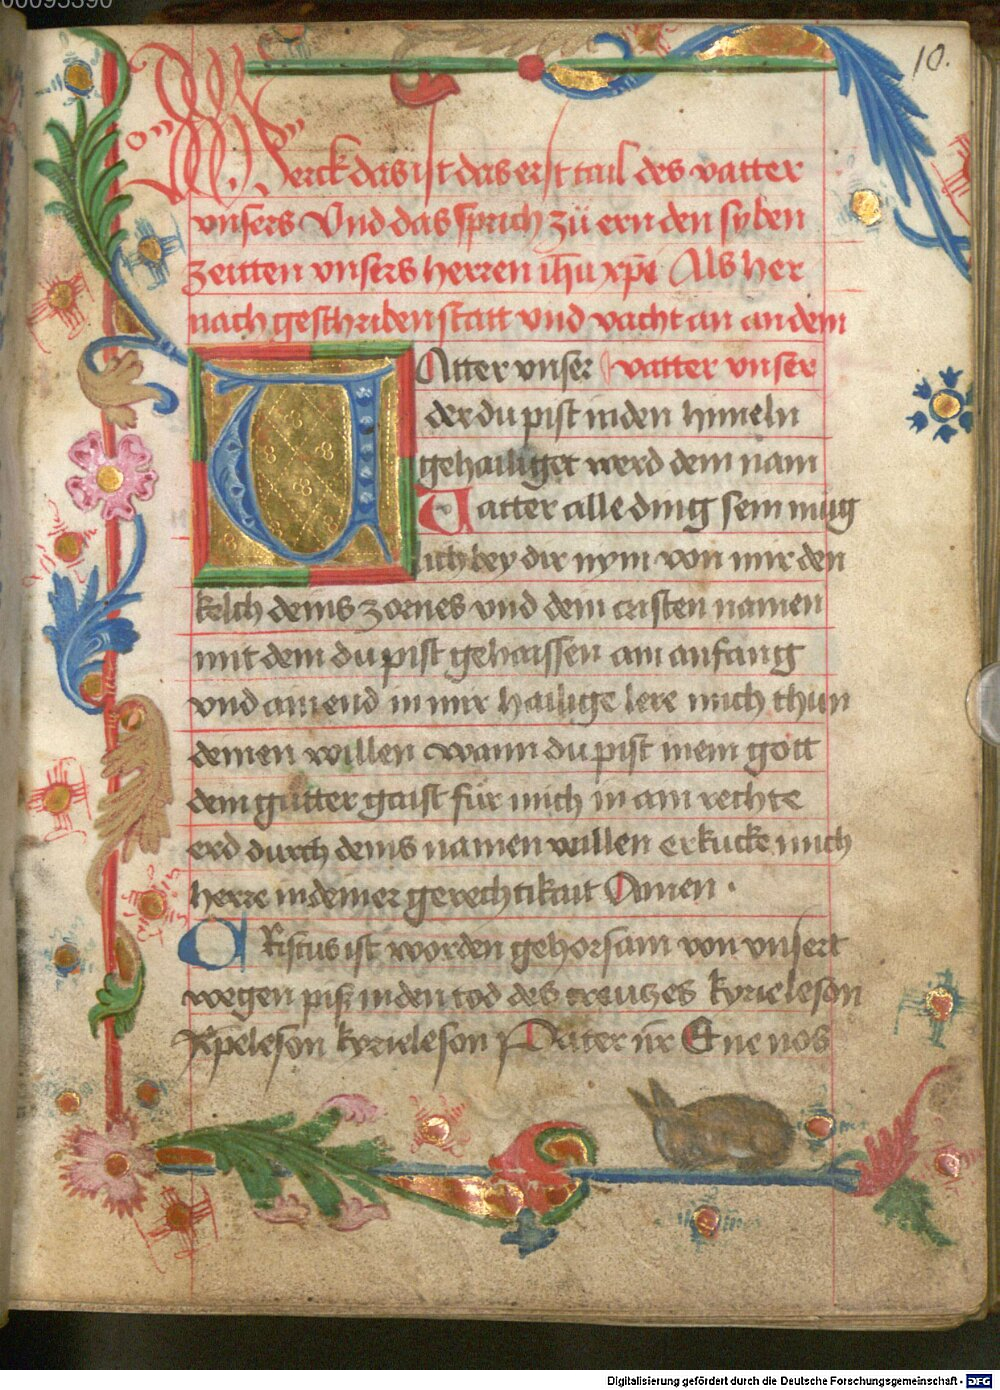 00095390
10.
Merck das ist das erst tail des vatter
vnsers Vnd das sprich zü ern den syben
zeitten vnsers herren ihu xpi Als her
nach geschriben statt vnd vacht an an dem
VAtter vnser vatter vnser
der du pist in den himeln
gehailiget werd dein nam
Vatter alle ding sein müg
lich bey dir nym von mir den
kelch deins zornes vnd dein cristen namen
mit dem du pist gehaissen am anfang
vnd am end in mir hailige lere mich thun
deinen willen wann du pist mein gott
dein gutter gaist für mich in ain rechte
erd durch deins namen willen erkucke mich
herre in deiner gerechtikait Amen .
CRistus ist worden gehorsam von vnsert
wegen piß in den tod des creutzes kyrieleson
Xpeleson kyrieleson Pater nr Et ne nos
Digitalisierung gefördert durch die Deutsche Forschungsgemeinschaft - DFG